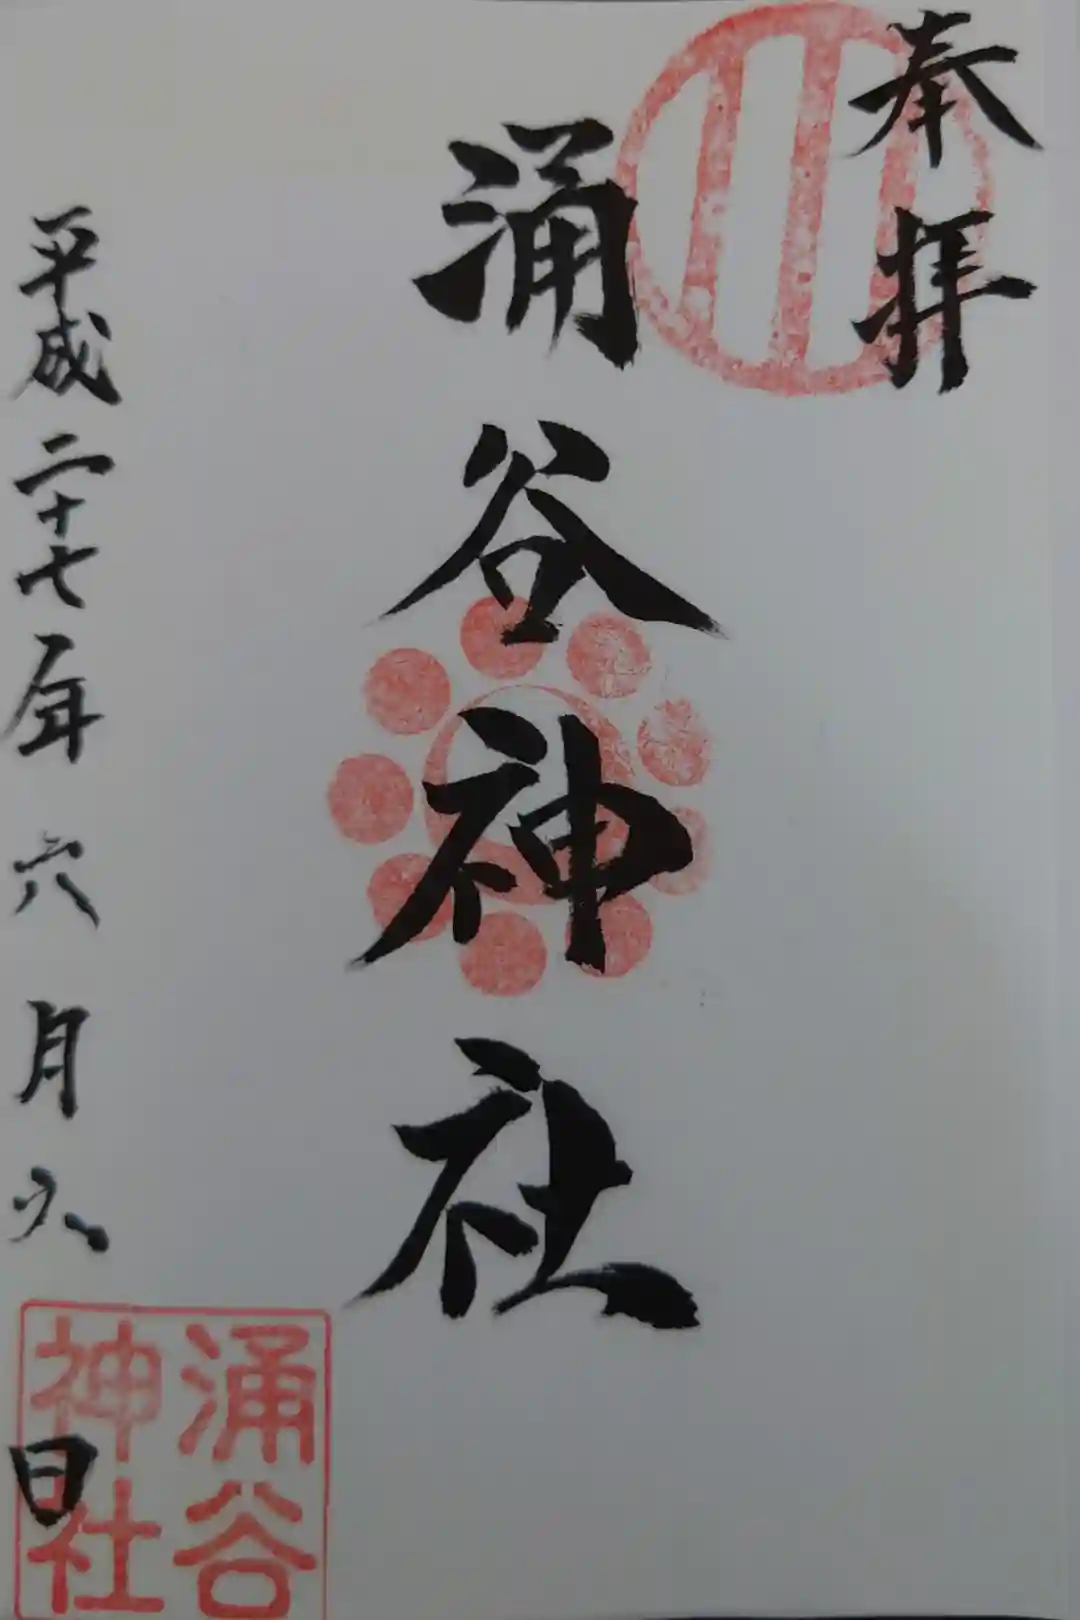 奉拝
涌谷神社
平成二十七年六月六日
涌谷
神社